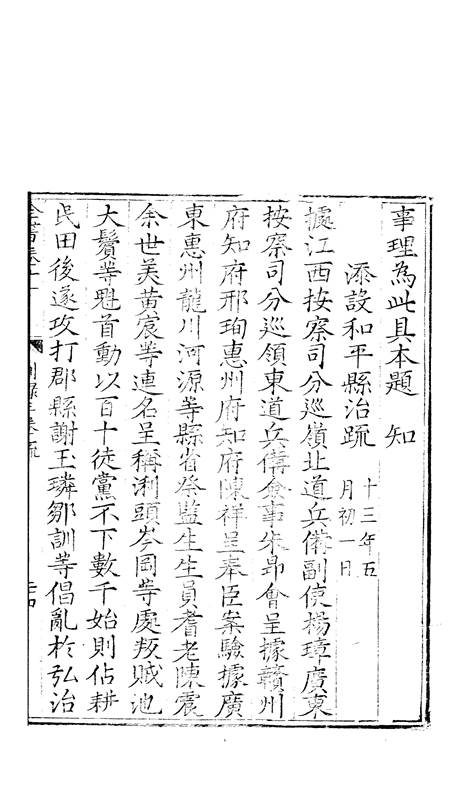 事理為此具本題 知
添設和平縣治疏 十三年五
月初一日
據江西按察司分巡嶺北道兵備副使楊璋廣東
按察司分巡領東道兵備僉事朱昂會呈據贛州
府知府邢珣惠州府知府陳祥呈奉臣案驗據廣
東惠州龍川河源等縣省祭監生生員耆老陳震
余世美黃宸等連名呈稱浰頭岑岡等處叛賊池
大鬢等魁首動以百十徒黨不下數千始則佔耕
民田後遂攻打郡縣謝玉璘鄒訓等倡亂於弘治